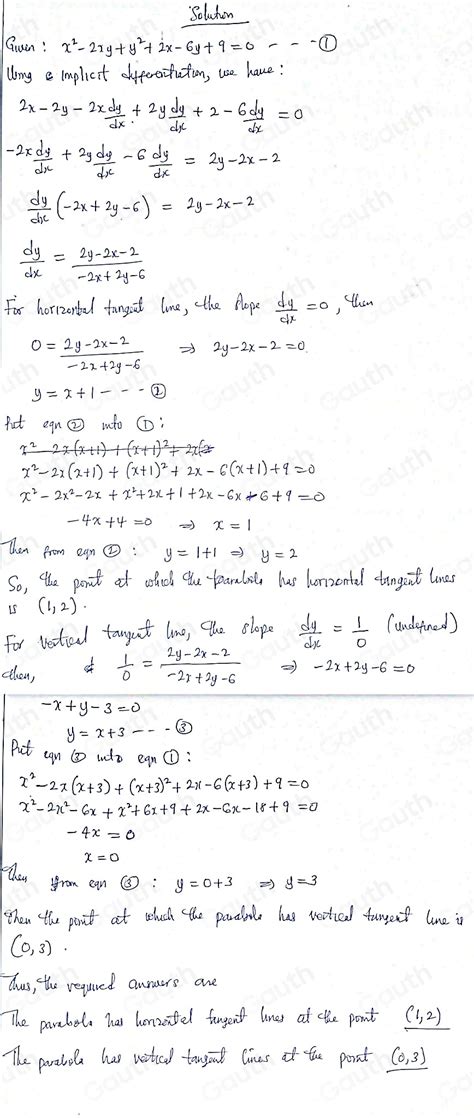 Solution
Given : x² - 2xy + y² + 2x - 6y + 9 = 0 - - - ①
Using implicit differentiation, we have :
2x - 2y - 2x dy/dx + 2y dy/dx + 2 - 6 dy/dx = 0
-2x dy/dx + 2y dy/dx - 6 dy/dx = 2y - 2x - 2
dy/dx (-2x + 2y - 6) = 2y - 2x - 2
dy/dx = (2y - 2x - 2)/(-2x + 2y - 6)
For horizontal tangent line, the slope dy/dx = 0, then
0 = (2y - 2x - 2)/(-2x + 2y - 6) ⇒ 2y - 2x - 2 = 0
y = x + 1 - - - ②
Put eqn ② into ① :
x² - 2x(x+1) + (x+1)² + 2x
x² - 2x(x+1) + (x+1)² + 2x - 6(x+1) + 9 = 0
x² - 2x² - 2x + x² + 2x + 1 + 2x - 6x - 6 + 9 = 0
-4x + 4 = 0 ⇒ x = 1
Then from eqn ② : y = 1+1 ⇒ y = 2
So, the point at which the parabola has horizontal tangent lines
is (1,2) .
For vertical tangent line, the slope dy/dx = 1/0 (undefined)
then, 1/0 = (2y - 2x - 2)/(-2x + 2y - 6) ⇒ -2x + 2y - 6 = 0
-x + y - 3 = 0
y = x + 3 - - - ③
Put eqn ③ into eqn ① :
x² - 2x(x+3) + (x+3)² + 2x - 6(x+3) + 9 = 0
x² - 2x² - 6x + x² + 6x + 9 + 2x - 6x - 18 + 9 = 0
-4x = 0
x = 0
Then from eqn ③ : y = 0+3 ⇒ y = 3
Then the point at which the parabola has vertical tangent line is
(0,3) .
Thus, the required answers are
The parabola has horizontal tangent lines at the point (1,2)
The parabola has vertical tangent lines at the point (0,3)